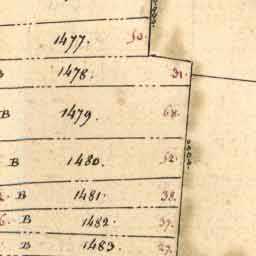 1477. 50.
B 1478. 31.
B 1479. 68.
B 1480. 52.
B 1481. 38.
B 1482. 37.
B 1483. 27.